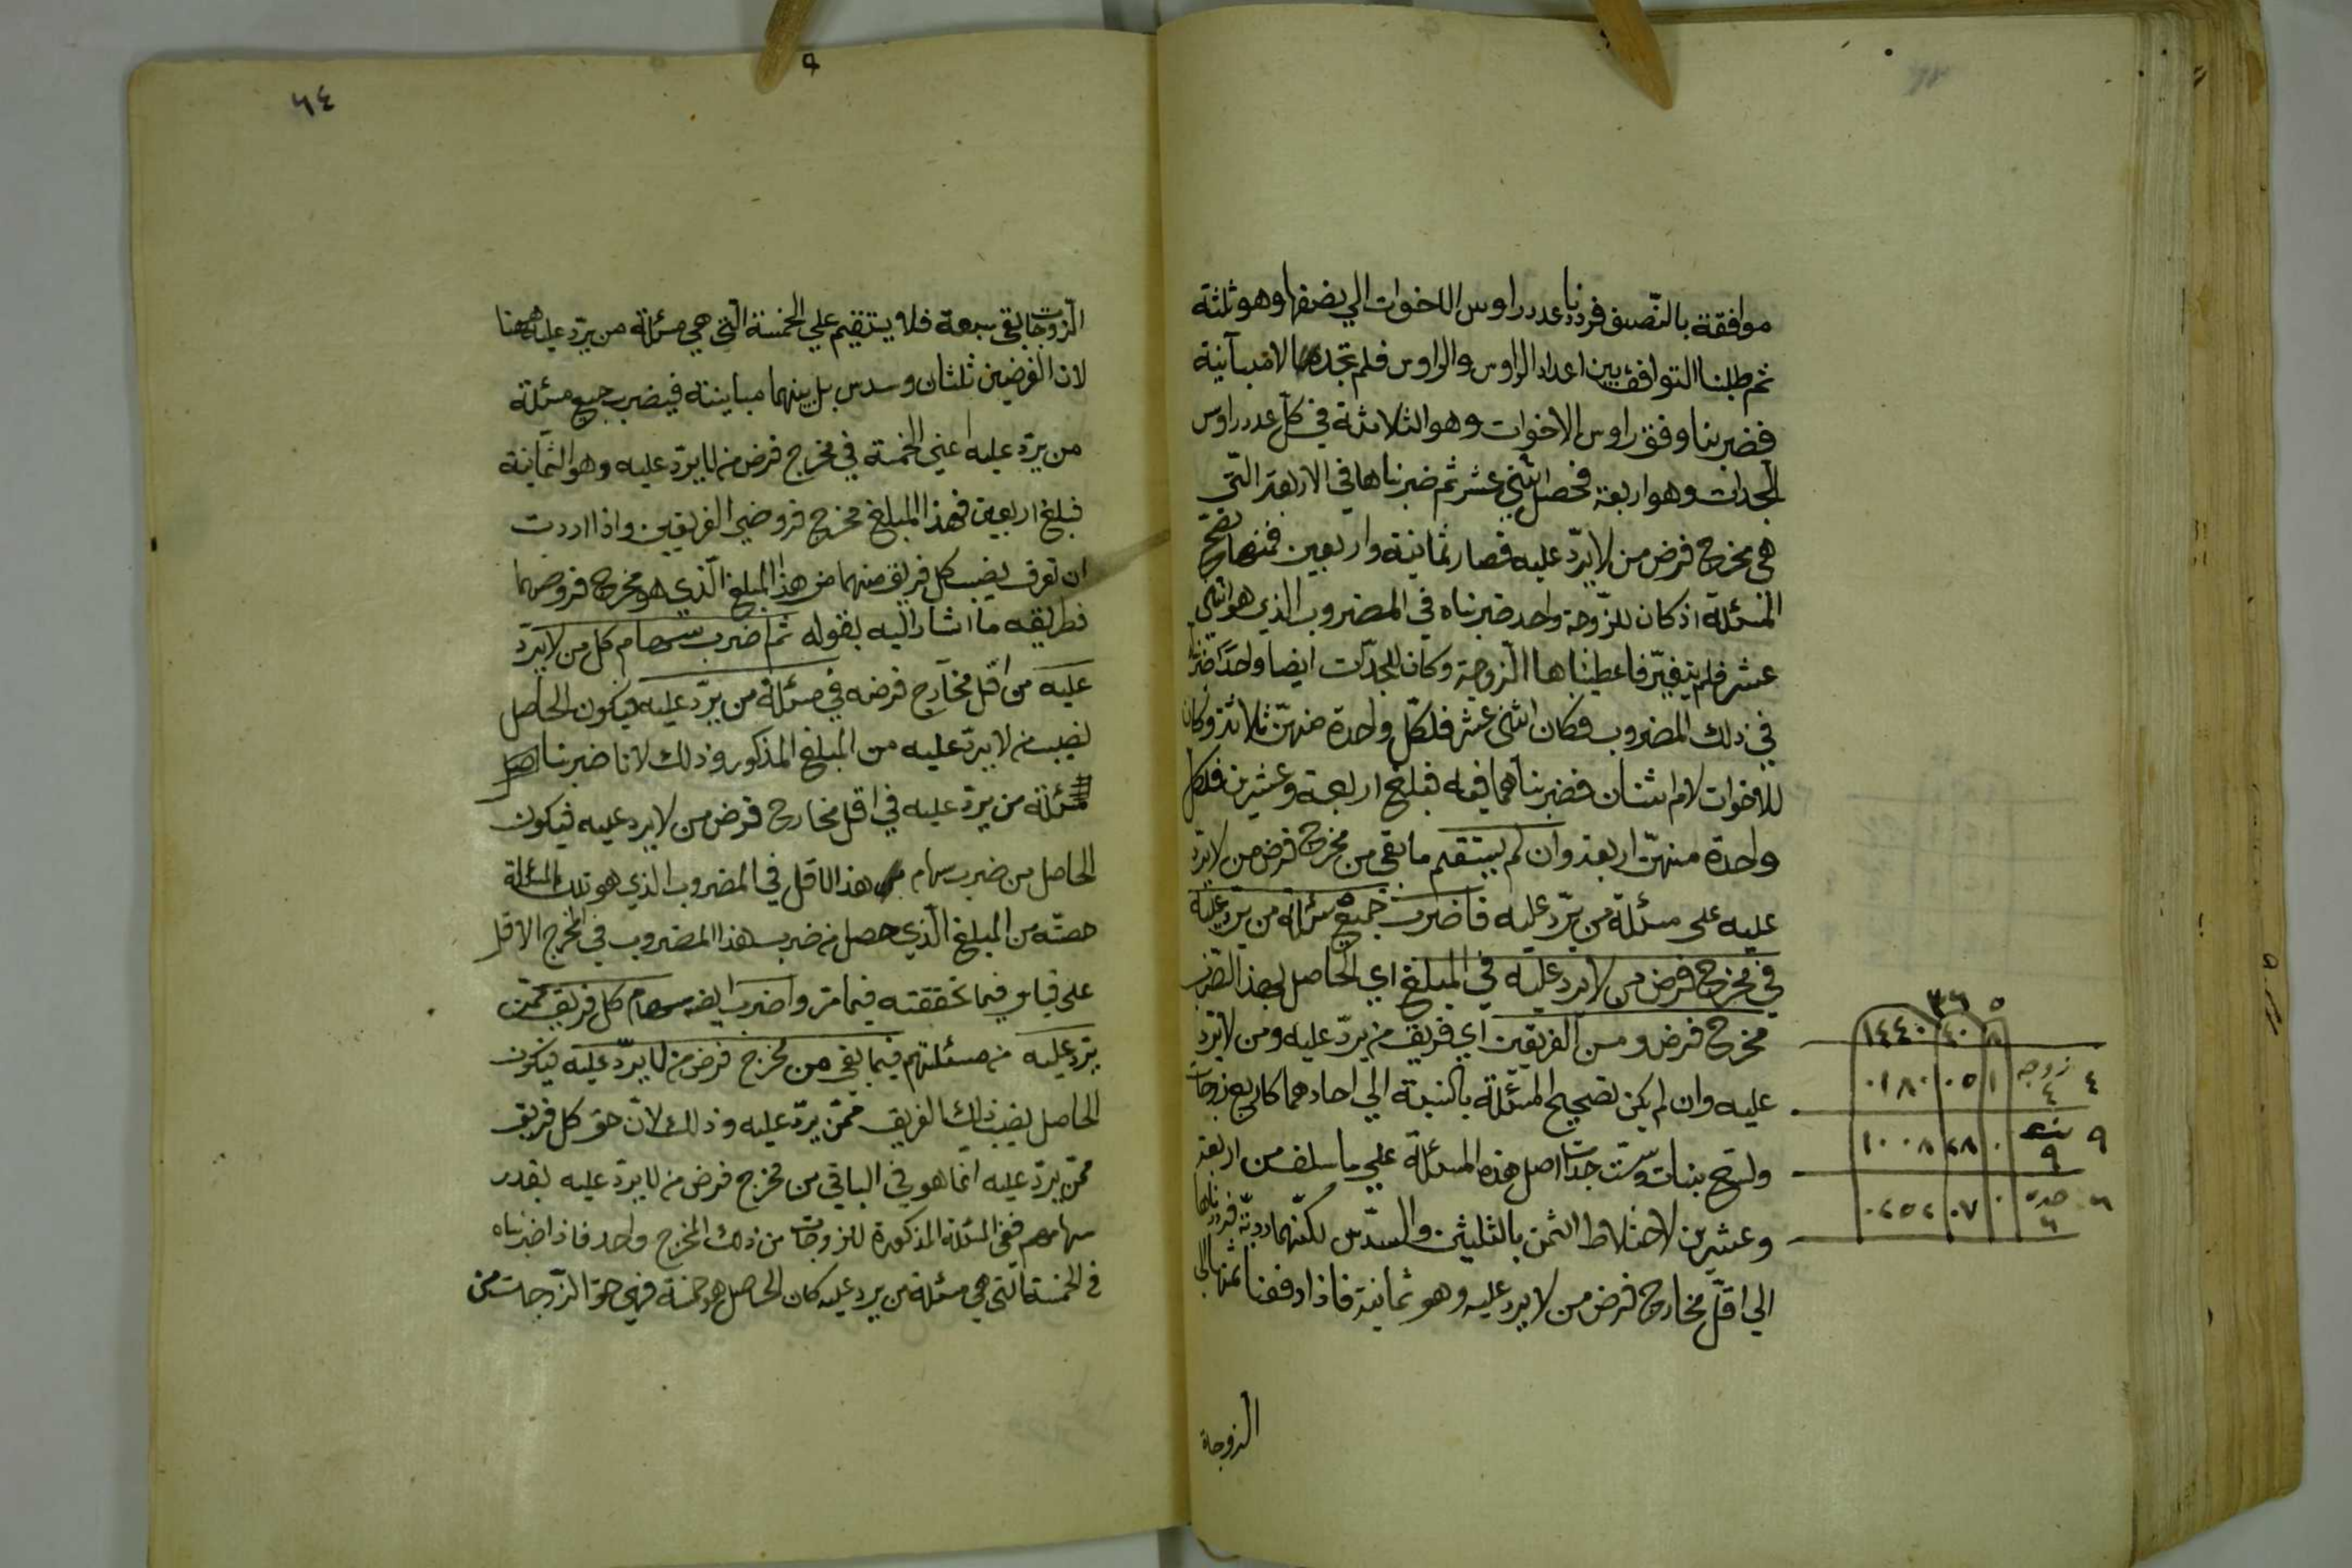 موافقة بالنّصف فرددنا عدد راوس الاخوات الي نصفها وهو ثلثة
ثم طلبنا التوافق بين اعداد الراوس والراوس فلم نجدها الا متباينة
فضربنا وفق راوس الاخوات وهو الثلاثة في كل عدد راوس
الجدات وهو اربعة فحصل اثني عشر ثم ضربناها في الاربعة التّي
هي مخرج فرض من لا يردّ عليه فصار ثمانية واربعين فمنها تصحّ
المسئلة اذ كان للزّوجة واحد ضربناه في المضروب الذي هو اثني
عشر فلم يتغيّر فاعطيناها الزوجة وكان للجدّات ايضا واحدا ضربنا
في ذلك المضروب فكان اثني عشر فلكلّ واحدة منهنّ ثلاثة وكان
للاخوات لام اثنان فضربناهما فيه فبلغ اربعة وعشرين فلكل
واحدة منهنّ اربعة وان لم يستقم ما بقي من مخرج فرض من لا يرد
عليه على مسئلة من يردّ عليه فاضرب جميع مسئلة من يرد عليه
في مخرج فرض من لا يرد عليه في المبلغ اي الحاصل بهذا الضرب
مخرج فرض ومن الفريقين اي فريق من يردّ عليه ومن لا يرد
عليه وان لم يكن تصحيح المسئلة بالنسبة الي احادهما كاربع زوجات
وتسع بنات وستّ جدات اصل هذه المسئلة علي ما سلف من اربعة
وعشرين لاختلاط الثمن بالثلثين والسدّس لكنّها رديّة فرددناها
الي اقلّ مخارج فرض من لا يرد عليه وهو ثمانية فاذا دفعنا ثمنها الي
الزوجاة
٥ ٣٦
٨ ٤٠ ١٤٤٠
٤ زوجه ٤ ١ ٠٥ ٠١٨٠
٩ بنت ٩ ٠ ٢٨ ١٠٠٨
٦ جده ٦ ٠ ٠٧ ٠٢٥٢
٦٤
الزوجات بقي سبعة فلا يستقيم علي الخمسة التّي هي مسئلة من يردّ عليه ههنا
لان الفرضين ثلثان وسدس بل بينهما مباينة فيضرب جميع مسئلة
من يردّ عليه اعني الخمسة في مخرج فرض من لا يردّ عليه وهو الثمانية
فبلغ اربعين فهذا المبلغ مخرج فروض الفريقين واذا اردت
ان تعرف نصيب كل فريق منهما من هذا المبلغ الّذي هو مخرج فروضهما
فطريقه ما اشار اليه بقوله ثم اضرب سهام كل من لا يردّ
عليه من اقل مخارج فرضه في مسئلة من يردّ عليه فيكون الحاصل
نصيب من لا يردّ عليه من المبلغ المذكور وذلك لانا ضربنا
مسئلة من يردّ عليه في اقل مخارج فرض من لا يرد عليه فيكون
الحاصل من ضرب سهام هذا الاقل في المضروب الذي هو تلك المسئلة
حصته من المبلغ الّذي حصل من ضرب هذا المضروب في المخرج الاقل
علي قياس فيما تحققته فيما مر واضرب ايضا سهام كل فريق ممّن
يردّ عليه من مسئلتهم فيما بقي من مخرج فرض من لا يردّ عليه فيكون
الحاصل نصيب ذلك الفريق ممّن يردّ عليه وذلك لانّ حق كل فريق
ممّن يردّ عليه انما هو في الباقي من مخرج فرض من لا يردّ عليه بقدر
سهامهم ففي المسئلة المذكورة للزوجات من ذلك المخرج واحد فاذا ضربناه
في الخمسة التّي هي مسئلة من يرد عليه كان الحاصل هو خمسة فهي حق الزّوجات من